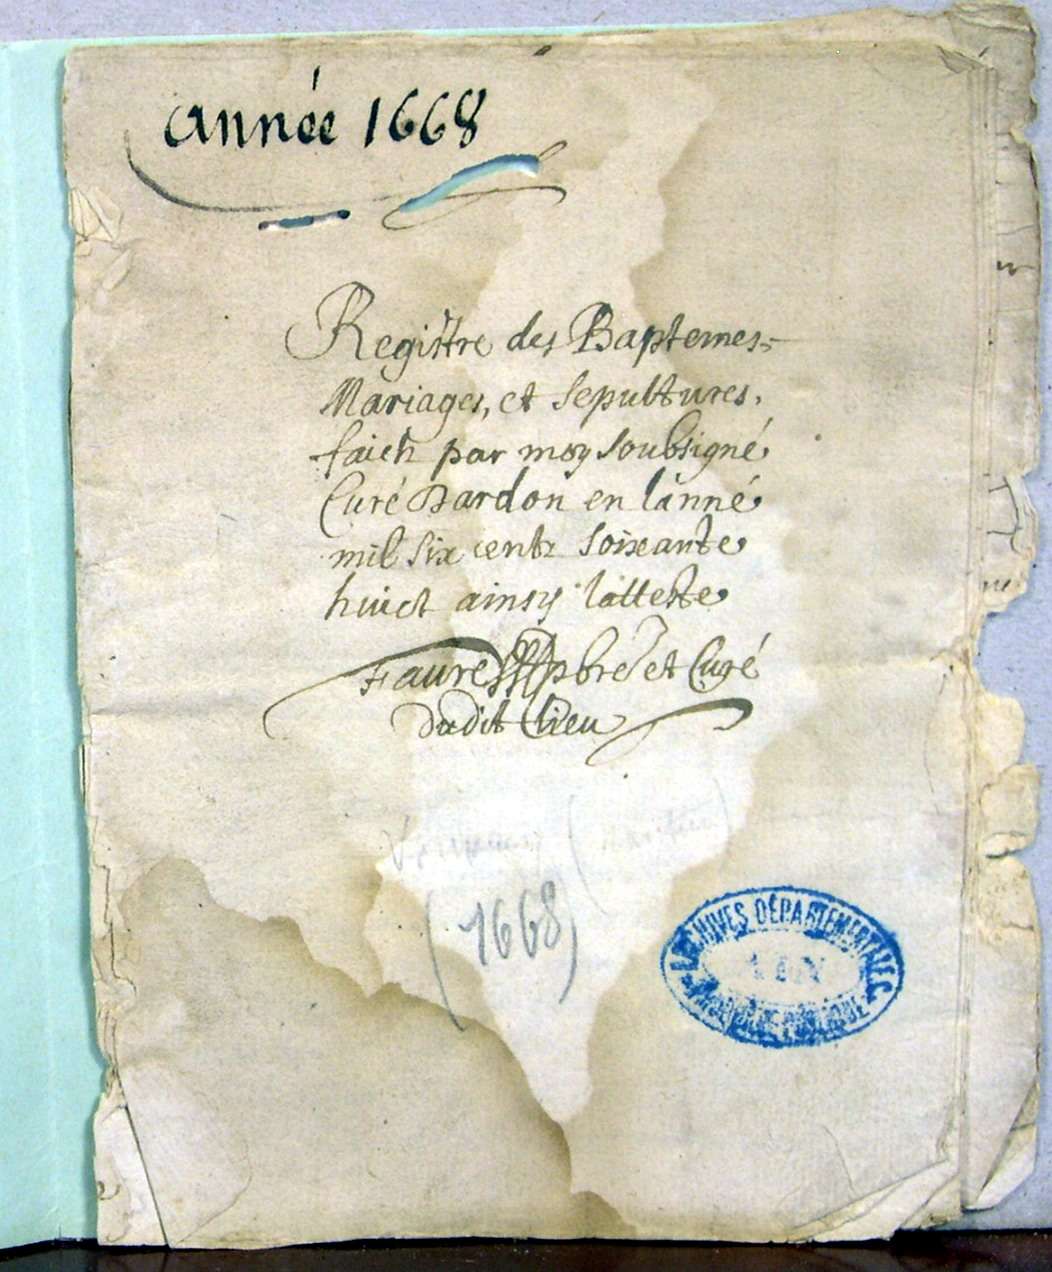 année 1668
Registre des Baptemes
Mariages, et sepultures,
faich par moy soubsigné
Curé Dardon en l'anné
mil six centz soixante
huict ainsy l'atteste
Faure pbre et Curé
dudit Lieu
(1668)
ARCHIVES DÉPARTEMENTALES
AIN